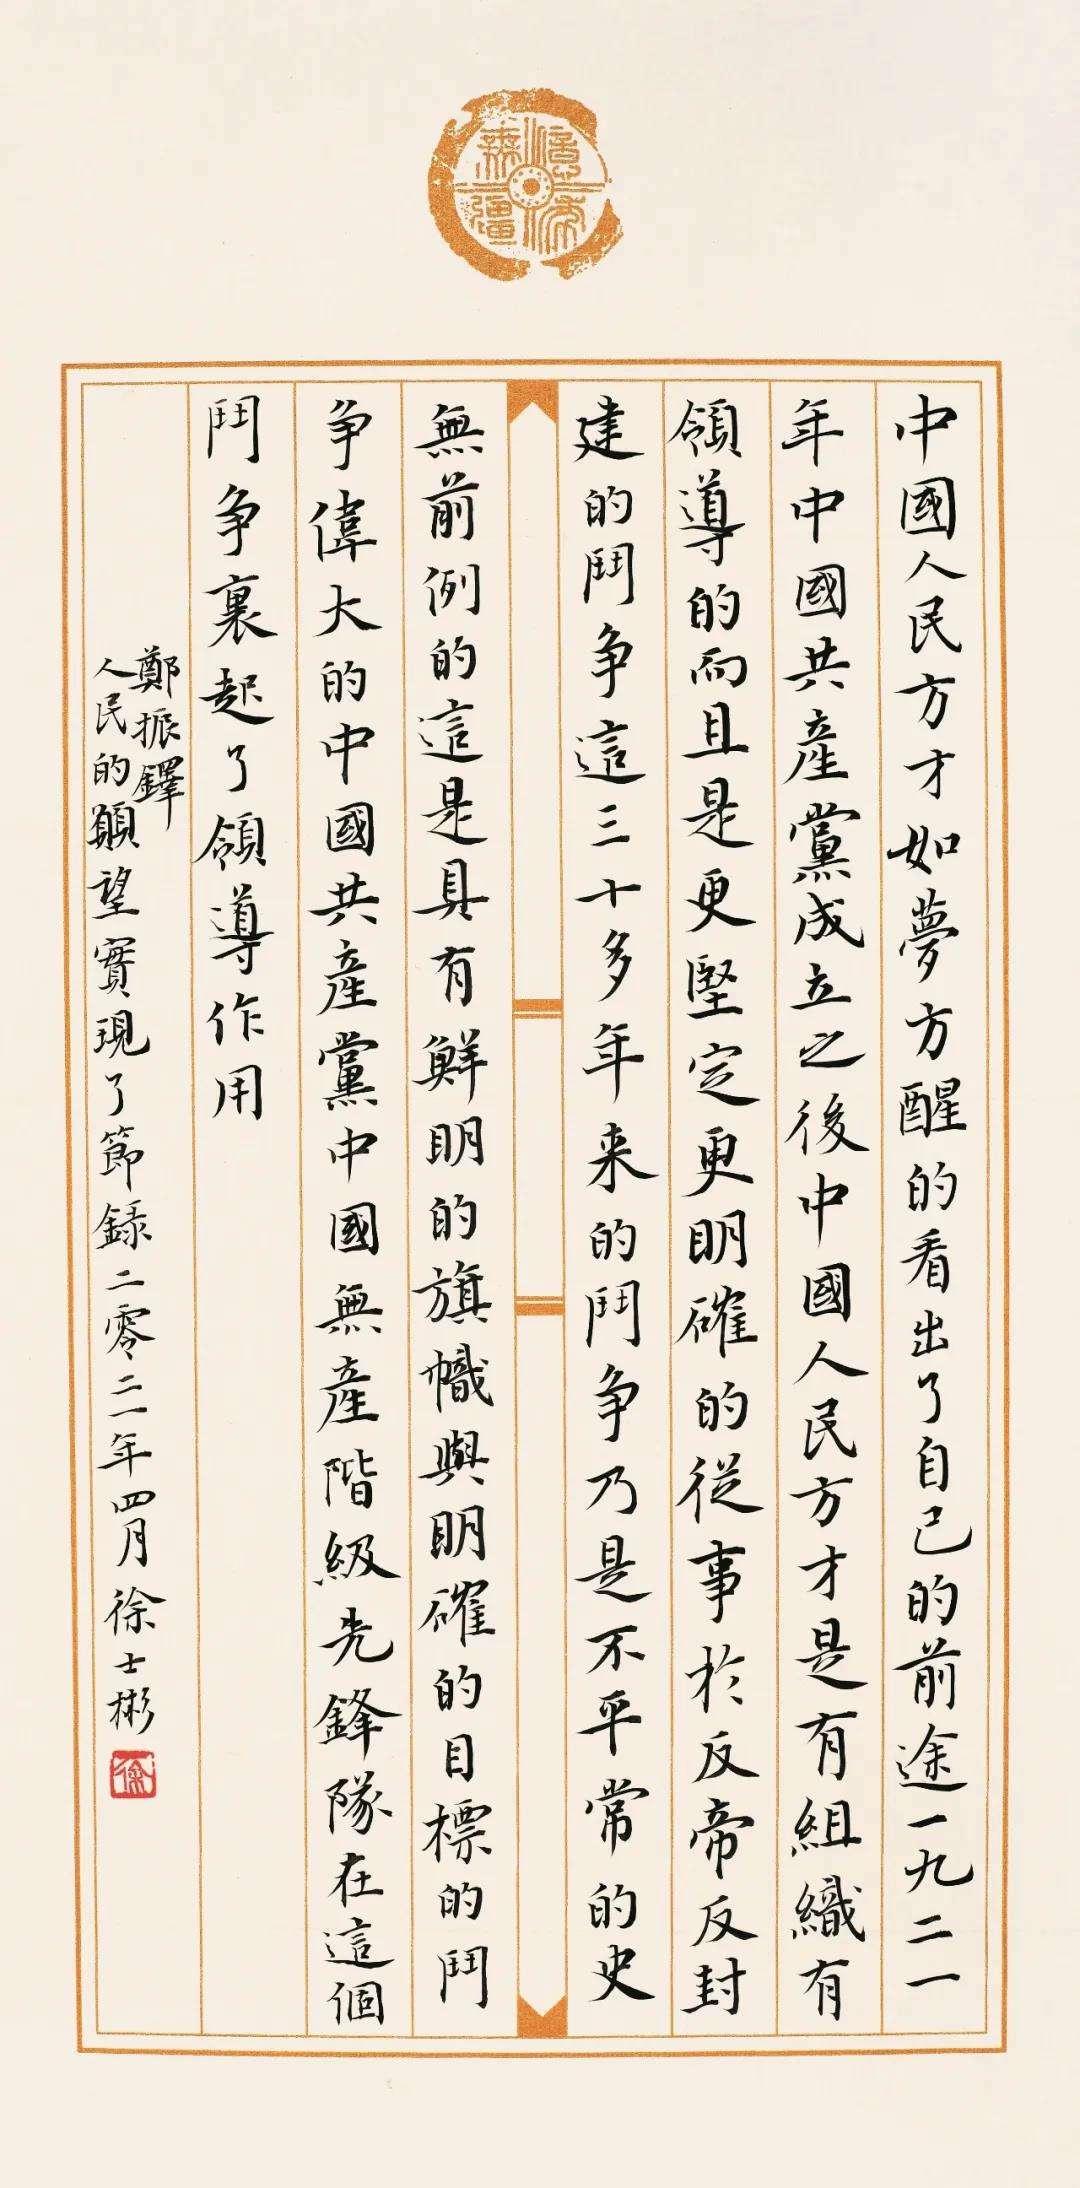 億年無疆
中國人民方才如夢方醒的看出了自己的前途一九二一
年中國共産黨成立之後中國人民方才是有組織有
領導的而且是更堅定更明確的從事於反帝反封
建的鬥争這三十多年来的鬥争乃是不平常的史
無前例的這是具有鮮明的旗幟與明確的目標的鬥
争偉大的中國共産黨中國無産階級先鋒隊在這個
鬥争裏起了領導作用
鄭振鐸
人民的願望實現了節録二零二一年四月徐士彬
徐